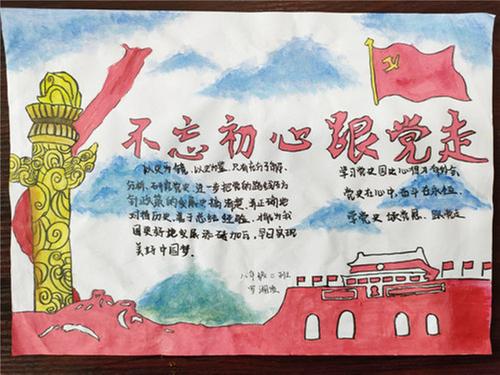 不忘初心跟党走
以史为镜，以史明鉴，只有充分了解
分析、研究党史，进一步把党的路线方
针政策的发展史搞清楚，
对待历史，善于总结经验，才能为我
国更好地发展添砖加瓦，早日实现
美好中国梦。
学习党史
党史在心中，奋斗在永恒
学党史 跟党走
八年级二班